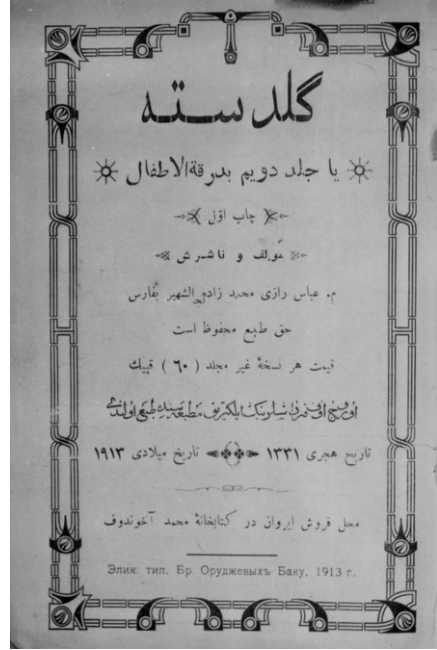 گلدسته
یا جلد دویم بدرقةالاطفال
چاپ اوّل
مؤلف و ناشرش
م. عباس رازی محمد زاده الشهیر بفارس
حق طبع محفوظ است
قیمت هر نسخهٔ غیر مجلد ( ٦٠ ) قپیك
اوروج اوف برادرلرینك ایلكتریق مطبعه‌سنده طبع اولندی
تاریخ هجری ١٣٣١ تاریخ میلادی ١٩١٣
محل فروش ایروان در کتابخانهٔ محمد آخوندوف
Элик. тип. Бр. Оруджевыхъ Баку, 1913 г.